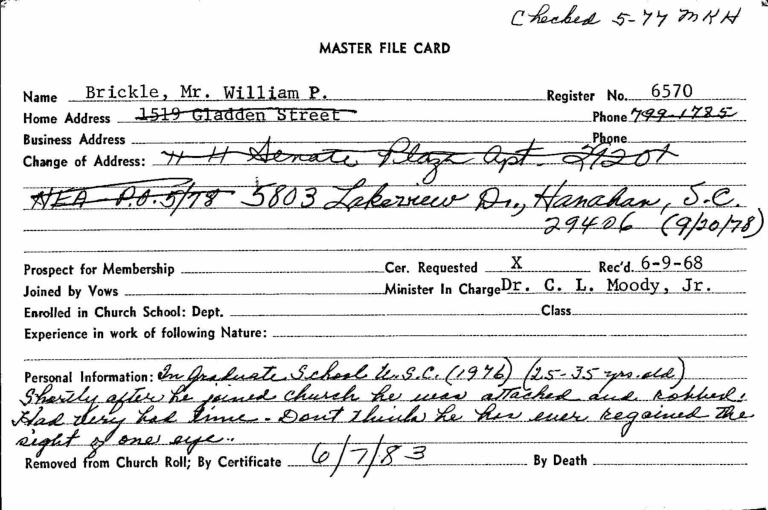 Checked 5-77 MKH
MASTER FILE CARD
Name Brickle, Mr. William P. Register No. 6570
Home Address 1519 Gladden Street Phone 799-1785
Business Address Phone
Change of Address: Senate Plaza Apt.
NEA P.O. 5/78 5803 Lakeview Dr., Hanahan, S.C.
29406 (9/20/78)
Prospect for Membership Cer. Requested X Rec'd. 6-9-68
Joined by Vows Minister In Charge Dr. C. L. Moody, Jr.
Enrolled in Church School: Dept. Class
Experience in work of following Nature:
Personal Information: In Graduate School U.S.C. (1976) (25-35 yrs. old)
Shortly after he joined church he was attacked and robbed.
Had very bad time - Dont think he has ever regained the
sight of one eye.
Removed from Church Roll; By Certificate 6/7/83 By Death